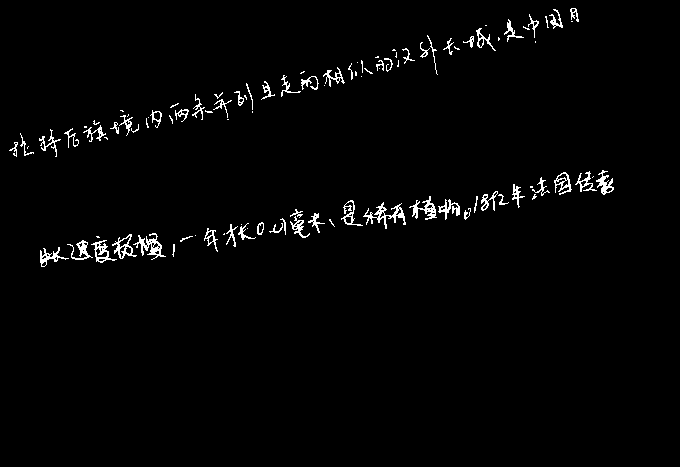 拉特后旗境内两条并列且走的相似的汉外长城,是中国月
生长速度极慢,一年才长0.01毫米、是稀有植物。1892年法国传教